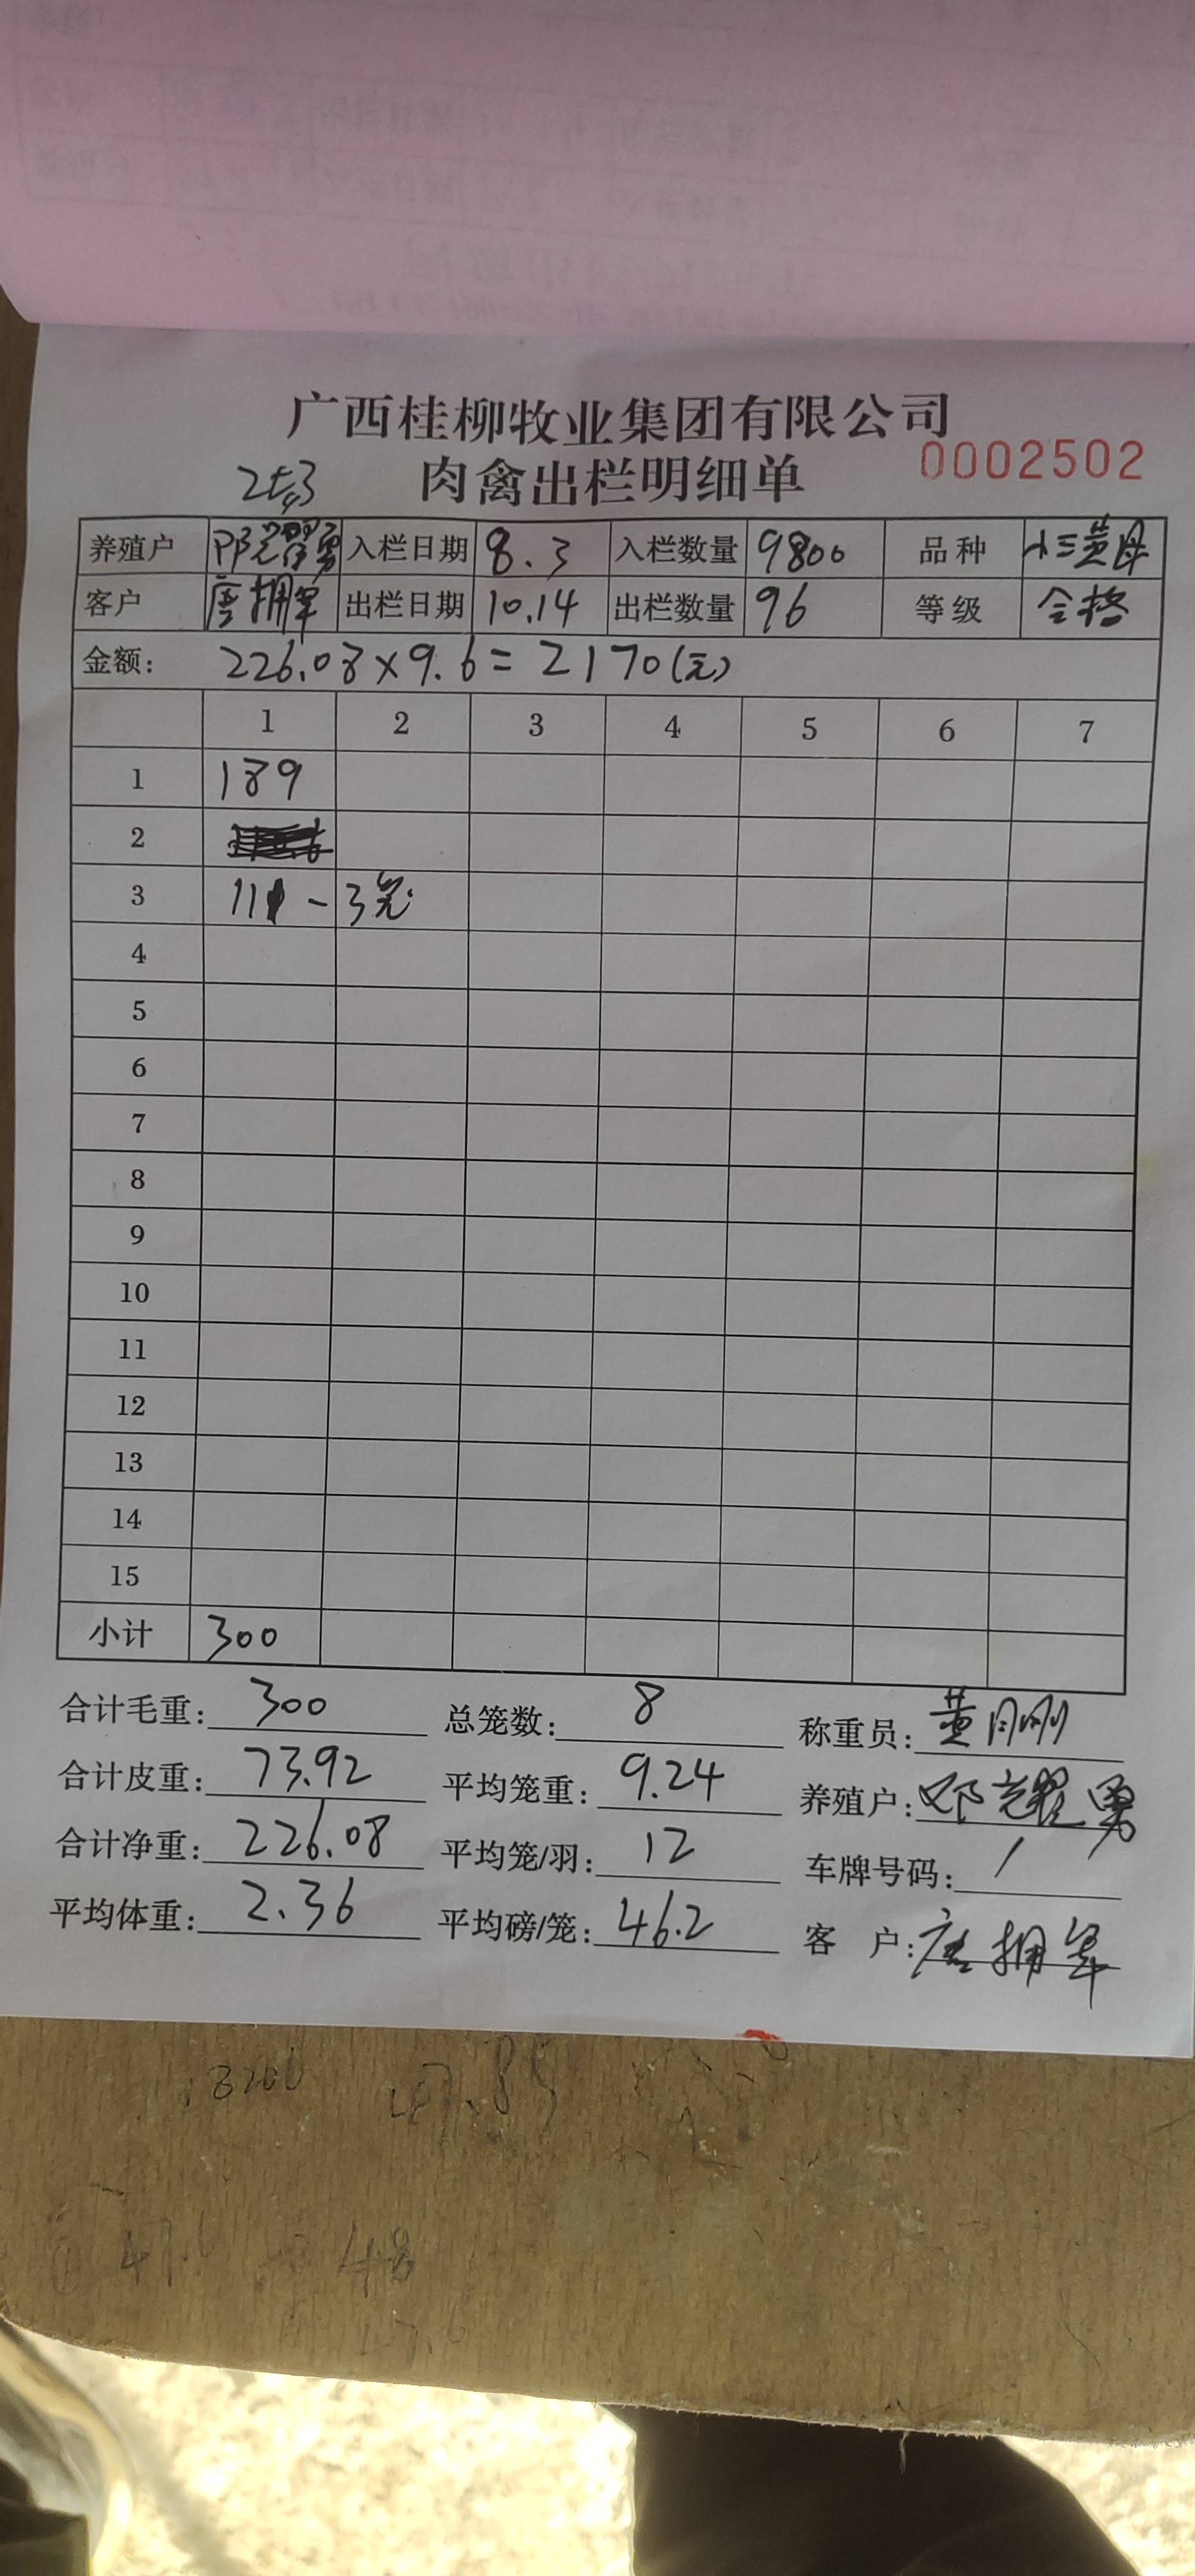 广西桂柳牧业集团有限公司
肉禽出栏明细单 0002502
养殖户 邓耀勇 入栏日期 8.3 入栏数量 9800 品种 小三黄母
客户 唐拥军 出栏日期 10.14 出栏数量 96 等级 合格
金额: 226.08×9.6=2170(元)
1 2 3 4 5 6 7
1 189
2
3 111-3笼
4
5
6
7
8
9
10
11
12
13
14
15
小计 300
合计毛重: 300 总笼数: 8 称重员: 黄月刚
合计皮重: 73.92 平均笼重: 9.24 养殖户: 邓耀勇
合计净重: 226.08 平均笼/羽: 12 车牌号码: /
平均体重: 2.36 平均磅/笼: 46.2 客 户: 唐拥军
48